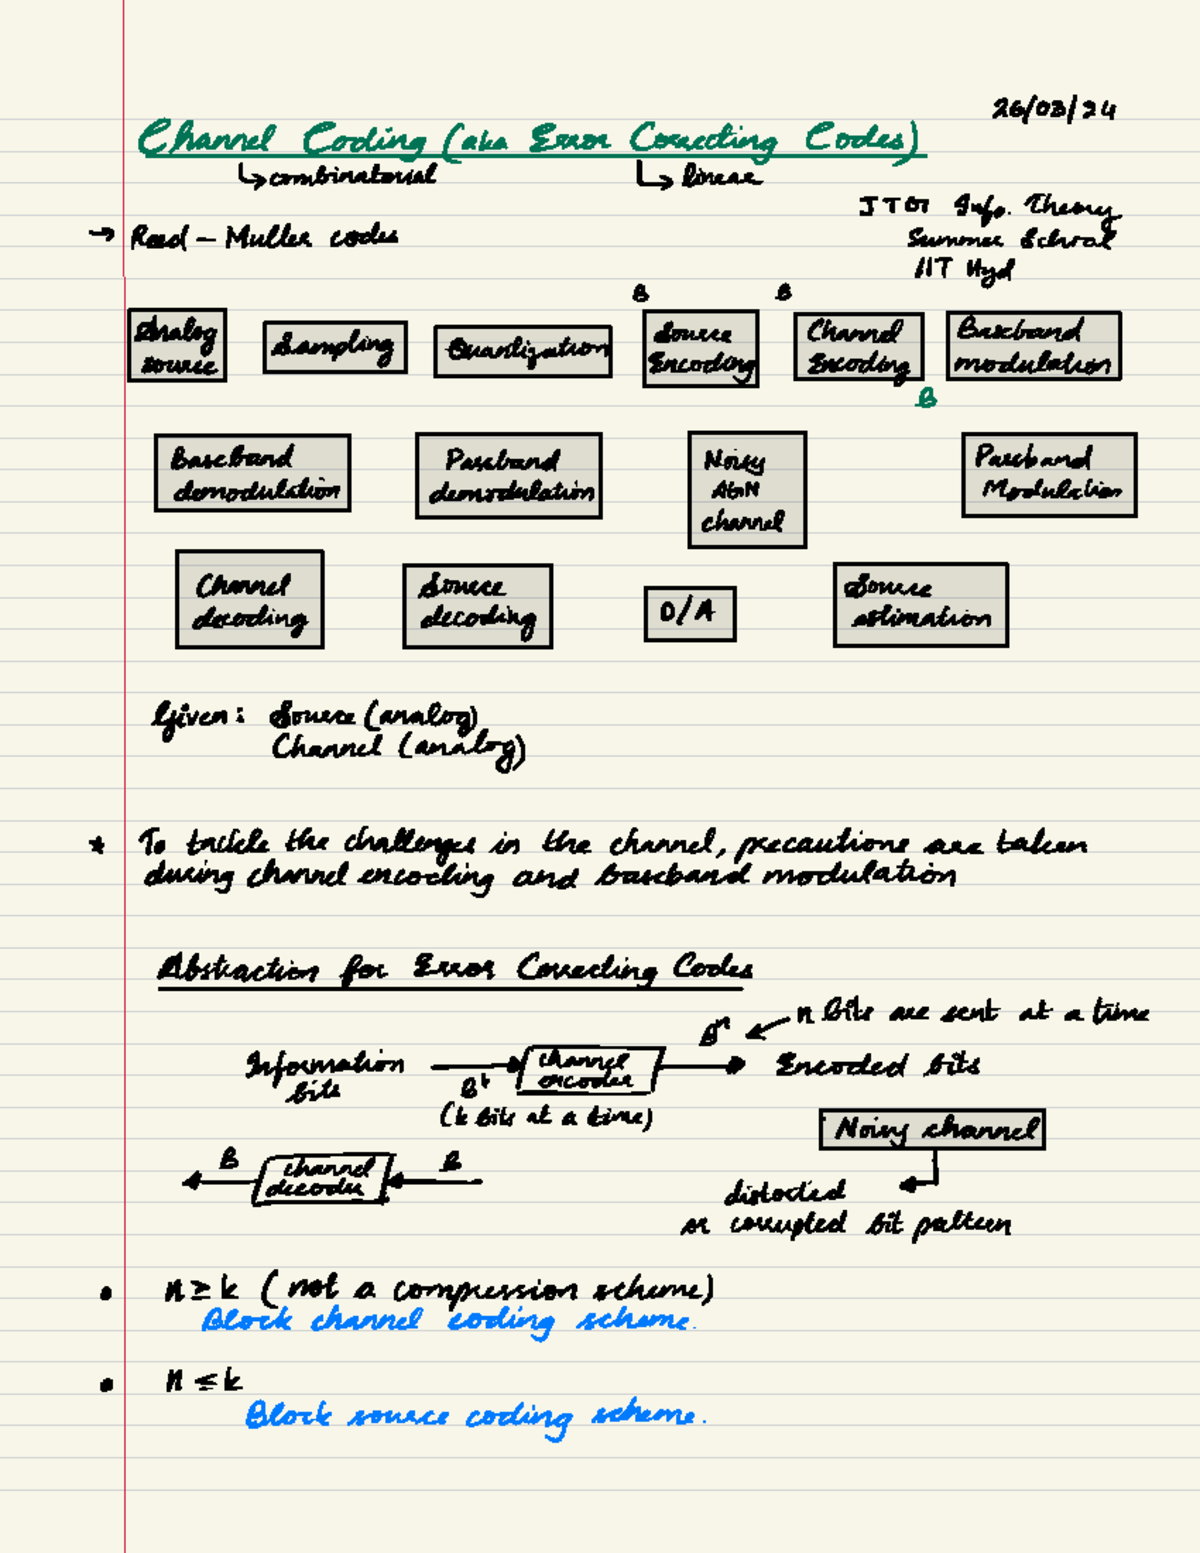 26/03/24
Channel Coding (aka Error Correcting Codes)
↳ combinatorial ↳ linear
JTG Info. Theory
Summer School
IIT Hyd
→ Reed - Muller codes
B B
Analog source Sampling Quantization Source Encoding Channel Encoding Baseband modulation
B
Baseband demodulation Passband demodulation Noisy channel Passband Modulation
Channel decoding Source decoding D/A Source estimation
Given: Source (analog)
Channel (analog)
* To tackle the challenges in the channel, precautions are taken
during channel encoding and baseband modulation
Abstraction for Error Correcting Codes
n bits are sent at a time
Information bits Bᵏ channel encoder Bⁿ Encoded bits
(k bits at a time)
Noisy channel
B channel decoder B
distorted
or corrupted bit pattern
• n ≥ k (not a compression scheme)
Block channel coding scheme.
• n ≤ k
Block source coding scheme.